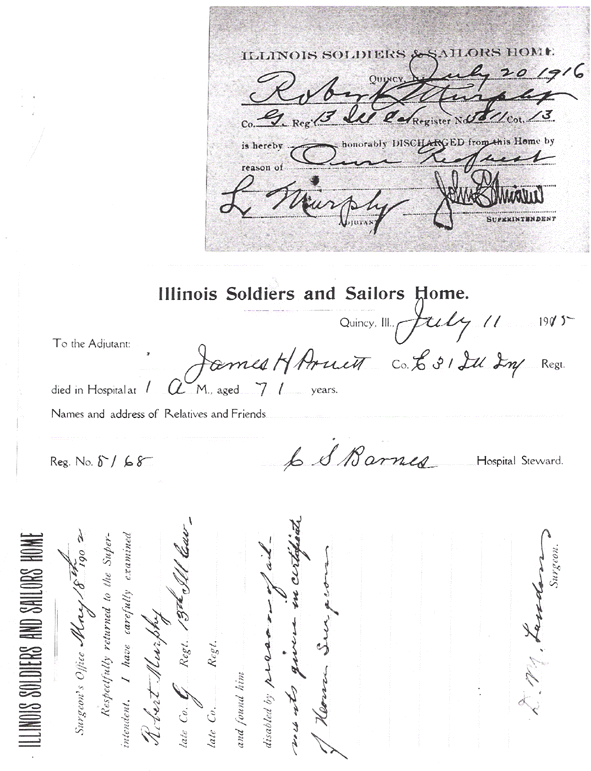 ILLINOIS SOLDIERS & SAILORS HOME
Quincy, Ill. July 20 1916
Robert Murphy
Co. G. Reg't 13 Ill Cav Register No. Cot. 13
is hereby honorably DISCHARGED from this Home by
reason of Own Request
L. Murphy
ADJUTANT
SUPERINTENDENT
Illinois Soldiers and Sailors Home.
Quincy, Ill., July 11 1915
To the Adjutant:
James H Pruett Co. C 31 Ill Inf Regt.
died in Hospital at 1 A M., aged 71 years.
Names and address of Relatives and Friends
Reg. No. 8168 C S Barnes Hospital Steward.
ILLINOIS SOLDIERS AND SAILORS HOME
Surgeon's Office May 18th 1902
Respectfully returned to the Super-
intendent. I have carefully examined
Robert Murphy
late Co. G Regt. 13th Ill Cav.
late Co. Regt.
and found him
disabled by reason of ail-
ments given in certificate
of Home Surgeon
D. M. Landon
Surgeon.